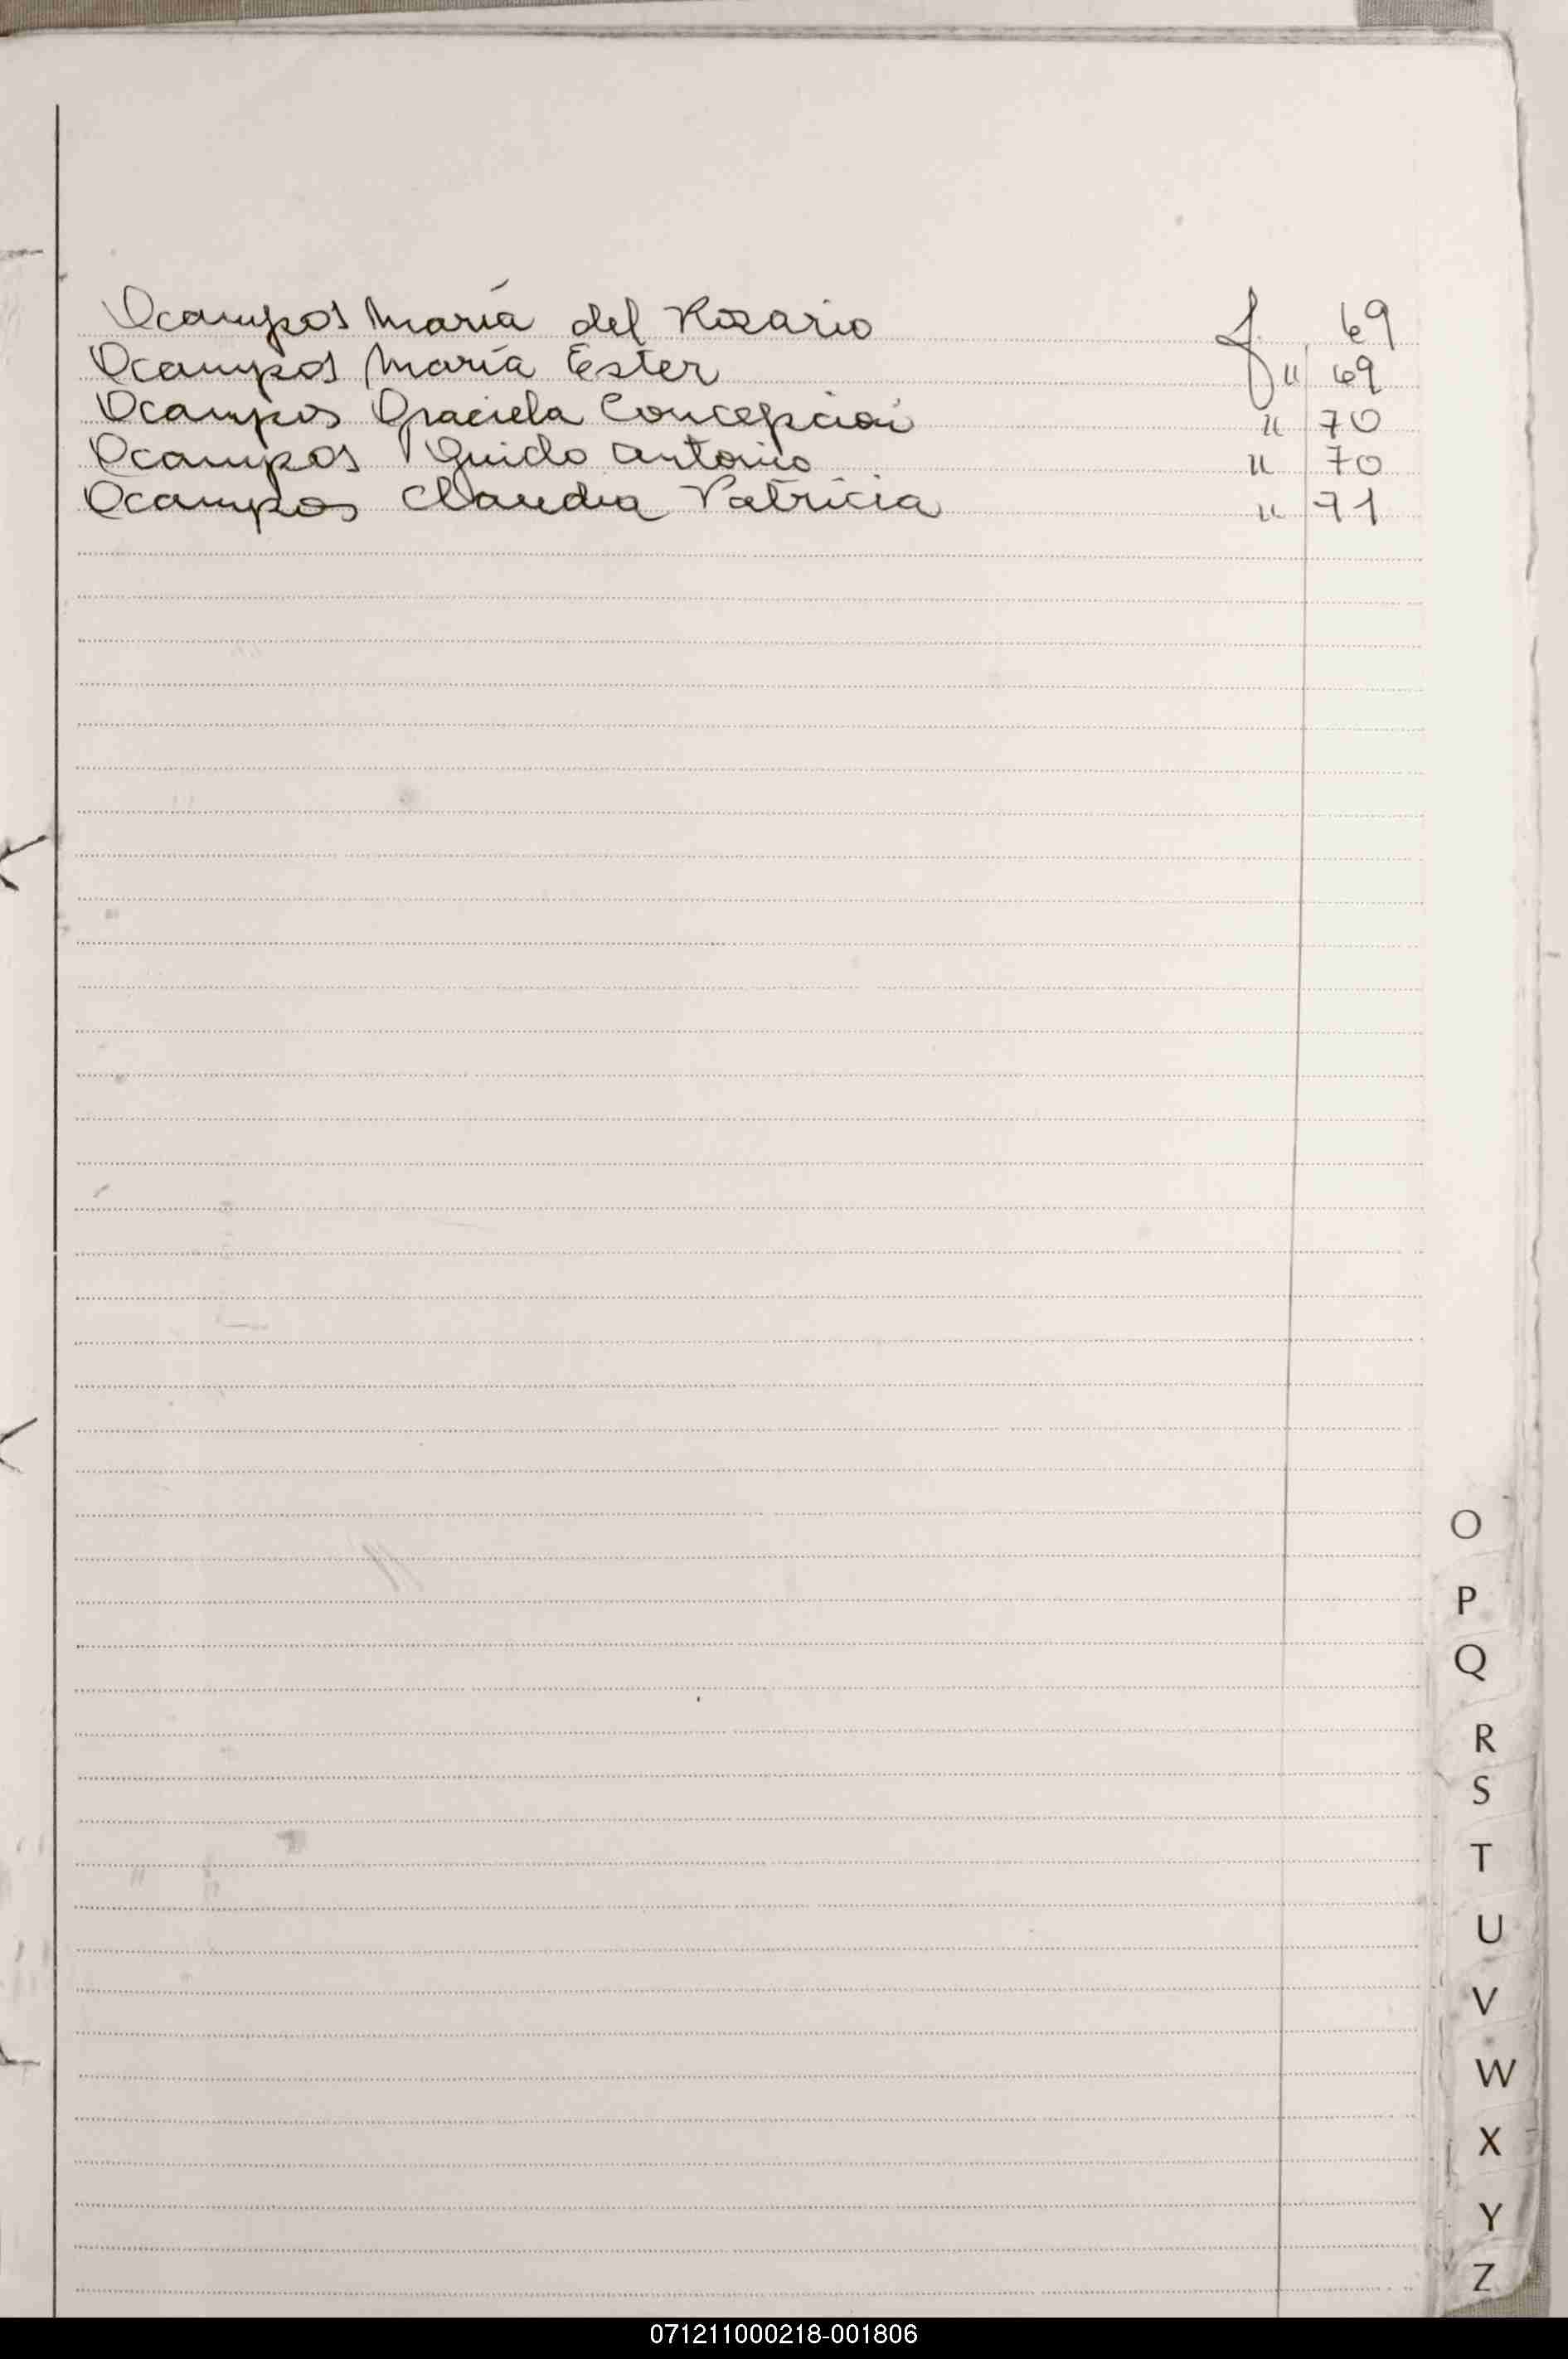 Ocampos María del Rosario f. 69
Ocampos María Ester " 69
Ocampos Graciela Concepción " 70
Ocampos Guido Antonio " 70
Ocampos Claudia Patricia " 71
O
P
Q
R
S
T
U
V
W
X
Y
Z
071211000218-001806